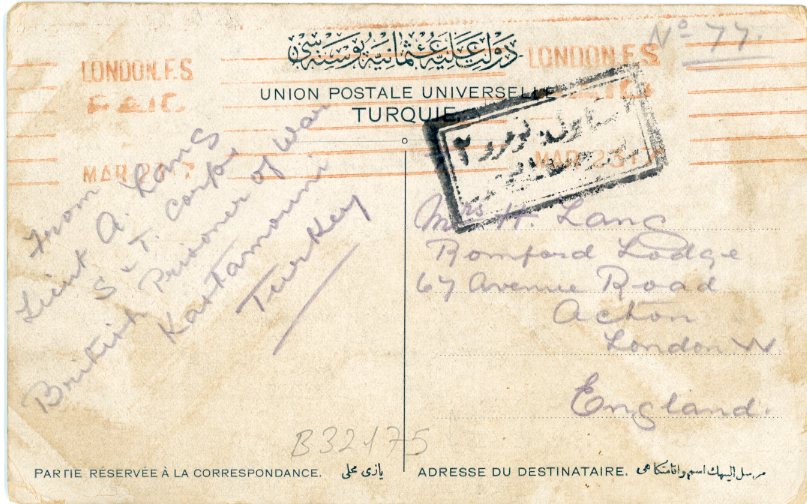 دولت عليه عثمانيه پوسته سى
Nº 77.
LONDON.F.S
LONDON.F.S
UNION POSTALE UNIVERSELLE
TURQUIE
MAR 23 17
MAR 23 17
From
Lieut A. Lang
S & T. Corps
British Prisoner of War
Kastamouni
Turkey
Mrs H. Lang
Romford Lodge
67 Avenue Road
Acton
London W
England.
B32175
PARTIE RÉSERVÉE À LA CORRESPONDANCE. يازى محلى
ADRESSE DU DESTINATAIRE. مرسل اليهك اسم و اقامتكاهى